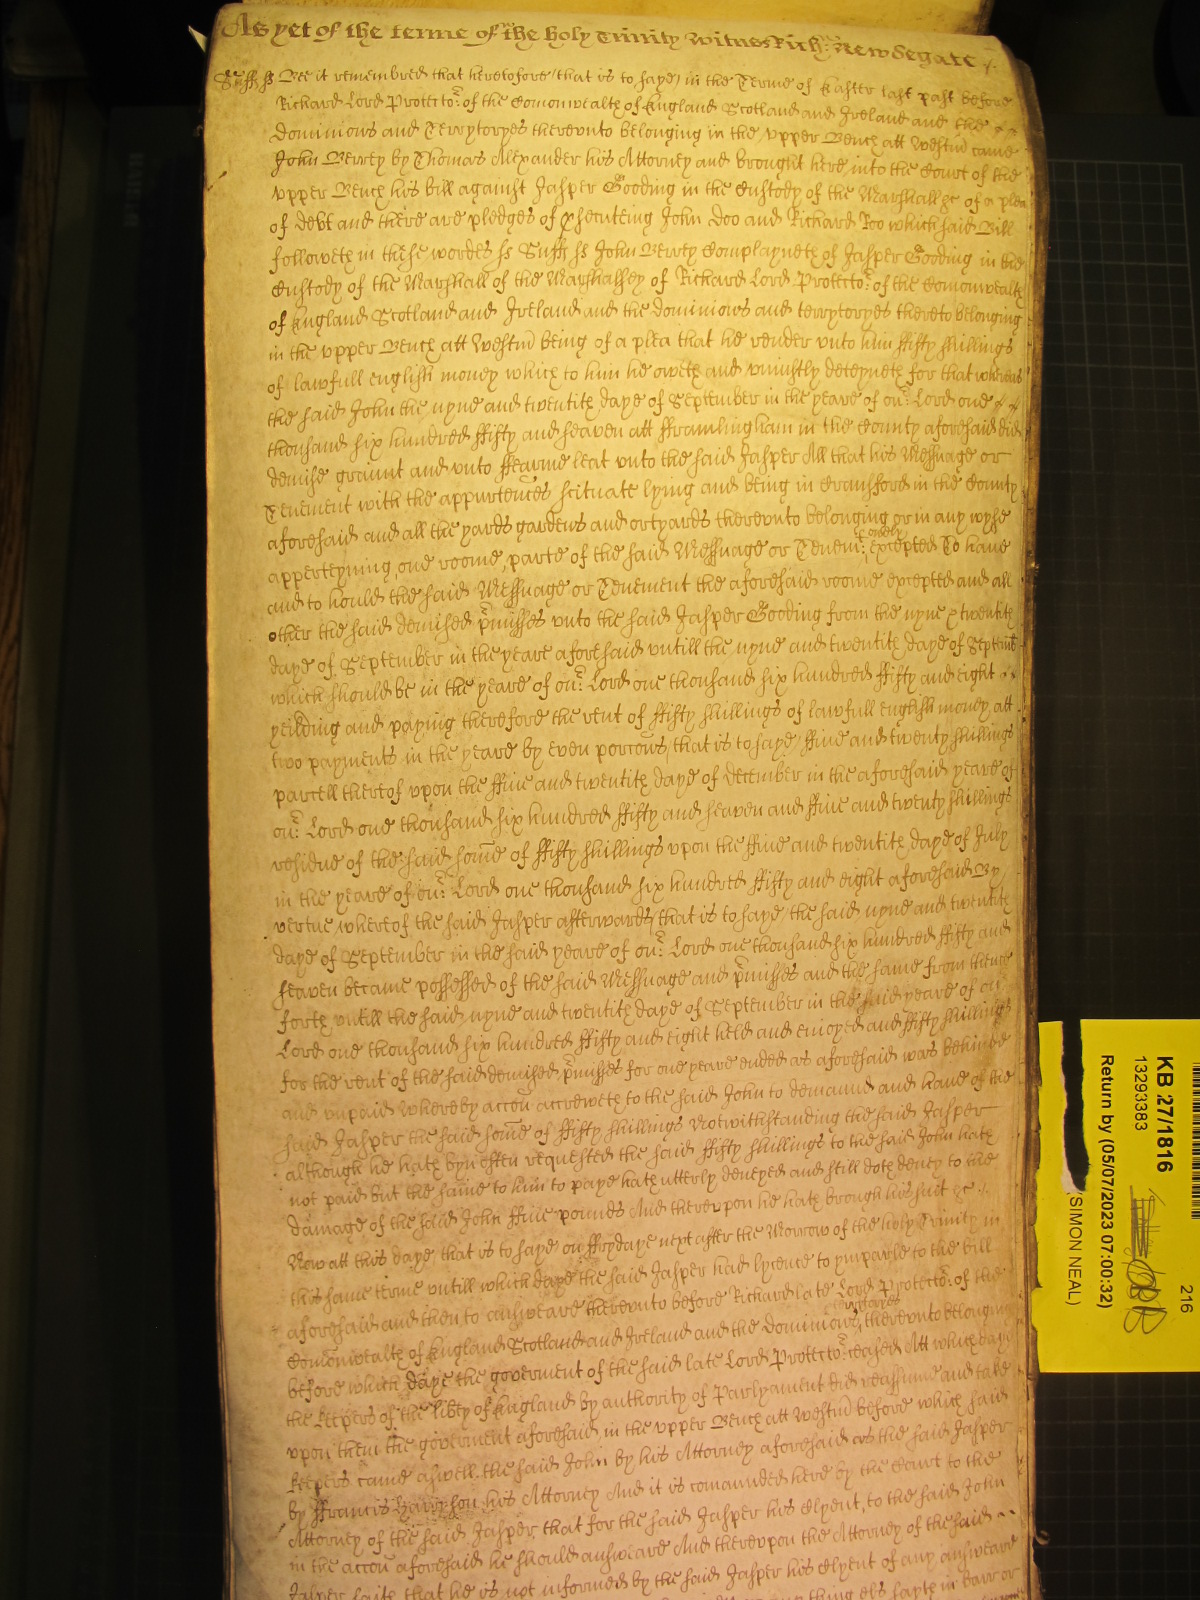 As yet of the terme of the holy Trinity Witnes Rich: Newdegate
Suff ss Bee it remembred that heretofore (that is to saye) in the Terme of Easter last past before
Richard Lord Protector of the Comonwealth of England Scotland and Ireland and the
dominions and Terrytoryes therevnto belonging in the vpper Bench att Westm came
John Berrey by Thomas Alexander his Attorney and brought here into the Court of the
vpper Bench his bill against Jasper Gooding in the Custody of the Marshall &c of a plea
of debt and there are pledges of prosecuteing John Doo and Richard Roo which said Bill
followeth in these wordes ss Suff ss John Berrey Complayneth of Jasper Gooding in the
Custody of the Marshall of the Marshalsey of Richard Lord Protector of the Comonwealth
of England Scotland and Ireland and the dominions and terrytoryes thereto belonging
in the vpper Bench att Westm being of a plea that he render vnto him ffifty shillings
of lawfull english money which to him he oweth and vniustly deteyneth for that whereas
the said John the nyne and twentith daye of September in the yeare of our Lord one
thousand six hundred ffifty and seaven att fframlingham in the County aforesaid did
demise graunt and vnto ffearme leat vnto the said Jasper All that his Messuage or
Tenement with the appurtences scituate lying and being in Cransford in the County
aforesaid and all the yards gardens and ortyards therevnto belonging or in any wyse
apperteyning, one roome, parte of the said Messuage or Tenemt excepted To have
and to hould the said Messuage or Tenement the aforesaid roome excepted and all
other the said demised pmisses vnto the said Jasper Gooding from the nyne & twentith
daye of September in the yeare aforesaid untill the nyne and twentith daye of Septemb
which should be in the yeare of our Lord one thousand six hundred ffifty and eight
yeilding and paying therefore the rent of ffifty shillings of lawfull english money att
two payments in the yeare by even porcons, that is to saye, ffive and twenty shillings
parcell thereof vpon the ffive and twentith daye of december in the aforesaid yeare of
our Lord one thousand six hundred ffifty and seaven and ffive and twenty shillings
residue of the said some of ffifty shillings vpon the ffive and twentith daye of July
in the yeare of our Lord one thousand six hundred ffifty and eight aforesaid By
vertue whereof the said Jasper afterwards, that is to saye, the said nyne and twentith
daye of September in the said yeare of our Lord one thousand six hundred ffifty and
seaven became possessed of the said Messuage and pmisses and the same from thence
forth vntill the said nyne and twentith daye of September in the said yeare of our
Lord one thousand six hundred ffifty and eight held and enioyed and ffifty shillings
for the rent of the said demised pmisses for one yeare ended as aforesaid was behinde
and vnpaid Whereby accon accreweth to the said John to demaund and have of the
said Jasper the said some of ffifty shillings Notwithstanding the said Jasper
although he hath byn often requested the said ffifty shillings to the said John hath
not paid but the same to him to paye hath utterly denyed and still doth deney to the
damage of the said John ffive pounds And therevpon he hath brough his suit &c
Now att this daye that is to saye on ffrydaye next after the Morrow of the holy Trinity in
this same terme untill which daye the said Jasper had lycence to imparle to the bill
aforesaid and then to answeare therevnto before Richard late Lord Protector of the
Comonwealth of England Scotland and Ireland and the dominions terrytoryes therevnto belonging
before which daye the goverment of the said late Lord Protector ceased Att which daye
the keepers of the libty of England by authority of Parlyament did reassume and take
vpon them the goverment aforesaid in the vpper Bench att Westm before which said
keepers came aswell the said John by his Attorney aforesaid as the said Jasper
by ffrancis Harrison his Attorney And it is comaunded here by the Court to the
Attorney of the said Jasper that for the said Jasper his Clyent, to the said John
in the accon aforesaid he should answeare And therevpon the Attorney of the said
Jasper saith that he is not informed by the said Jasper his Clyent of any answeare
thing els sayth in barr or
KB 27/1816
13293383
Return by (05/07/2023 07:00:32)
(SIMON NEAL)
216